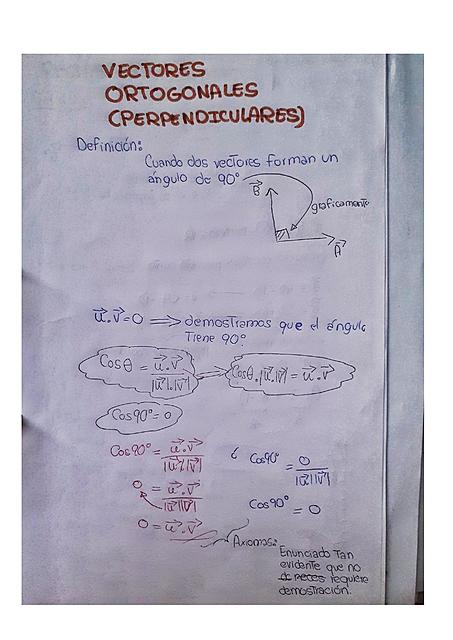 VECTORES
ORTOGONALES
(PERPENDICULARES)
Definición:
Cuando dos vectores forman un
ángulo de 90°
B⃗
gráficamente
A⃗
u⃗.v⃗=0 ⟹ demostramos que el ángulo
Tiene 90°
Cosθ = u⃗.v⃗/|u⃗|.|v⃗| → Cosθ.|u⃗|.|v⃗| = u⃗.v⃗
Cos90°=0
Cos90° = u⃗.v⃗/|u⃗||v⃗|
0 = u⃗.v⃗/|u⃗||v⃗|
0 = u⃗.v⃗
ó Cos90° = 0/|u⃗||v⃗|
Cos90° = 0
Axiomas:
Enunciado Tan
evidente que no
requiere
demostración.